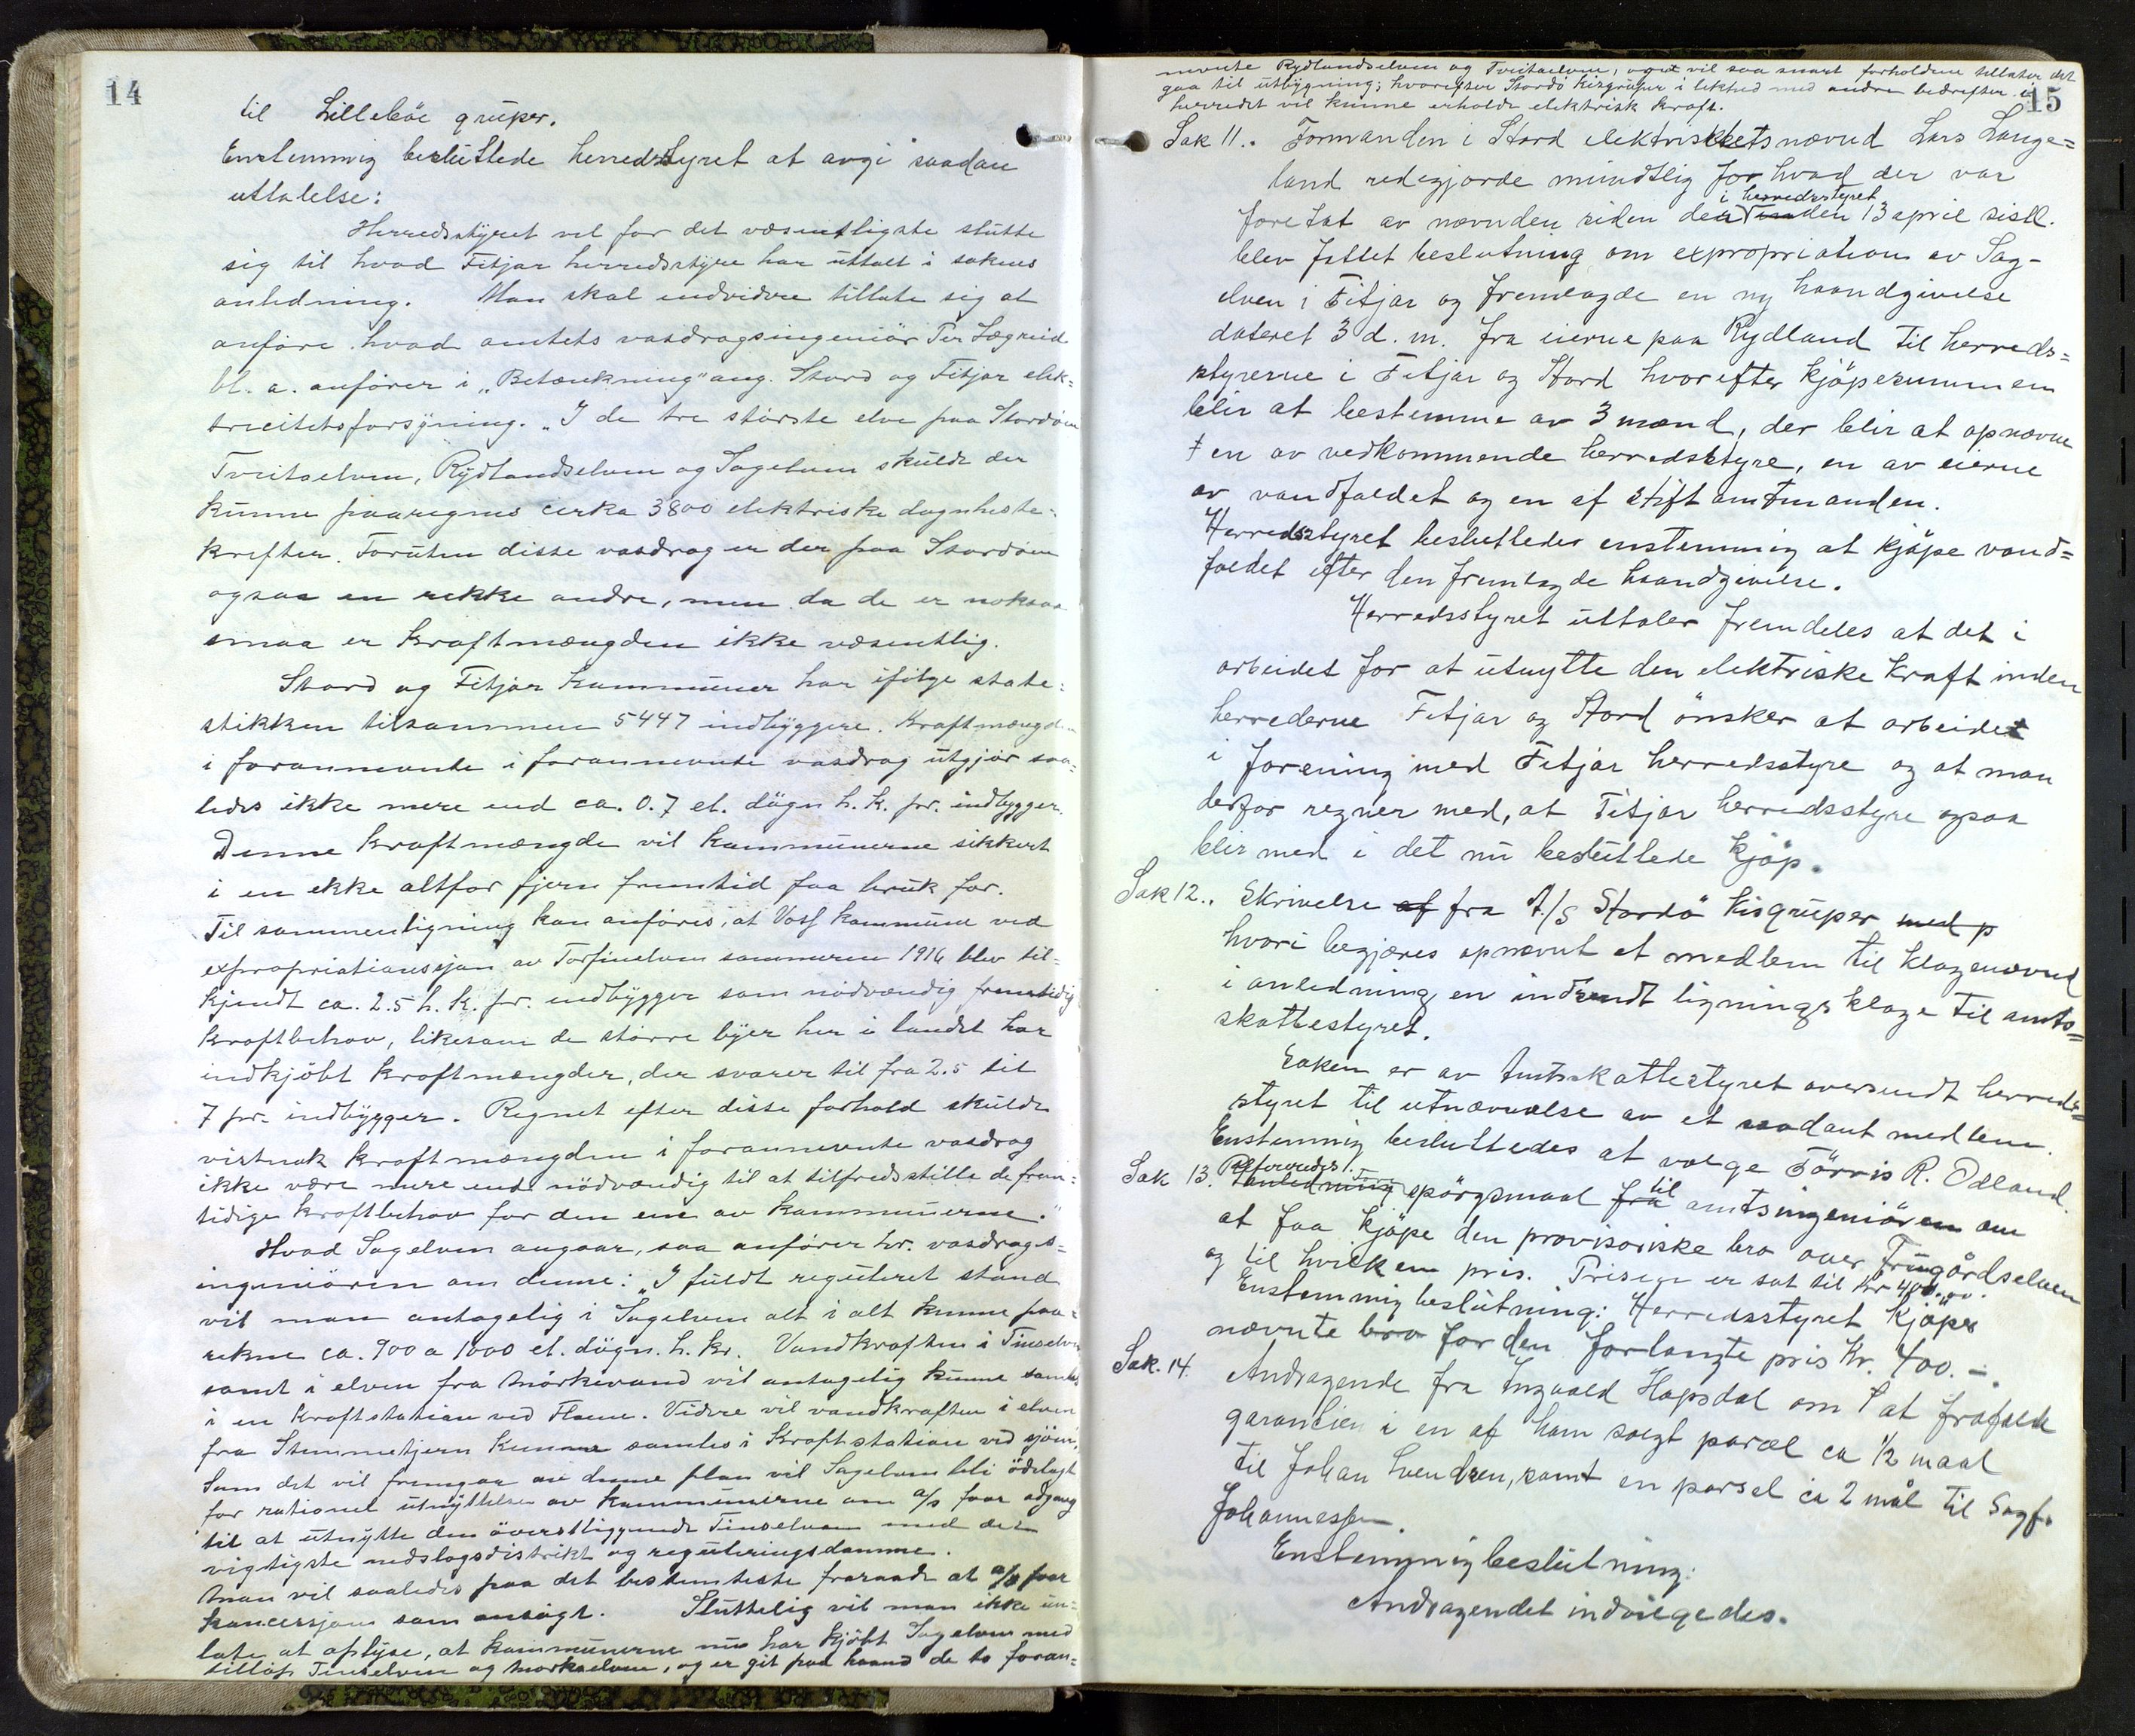 14
til Lillebøe gruper.
Enstemmig besluttede herredsstyret at avgi saadan
uttalelse:
Herredsstyret vil for det væsentligste slutte
sig til hvad Fitjar herredsstyre har uttalt i sakens
anledning. Man skal endvidere tillate sig at
anføre hvad amtets vasdragsingeniør Per Lægreid
bl. a. anfører i „Betænkning" ang. Stord og Fitjar elek=
tricitetsforsyning. „I de tre største elve paa Stordøen
Tveitaelven, Rydlandselven og Sagelven skulde der
kunne paaregnes cirka 3800 elektriske døgnheste-
krefter. Foruten disse vasdrag er der paa Stordøen
ogsaa en rekke andre, men da de er noksaa
smaa er kraftmængden ikke væsentlig.
Stord og Fitjar kommuner har ifølge stati-
stikken tilsammen 5447 indbyggere. Kraftmængden
i forannevnte i forannevnte vasdrag utgjør saa-
ledes ikke mere end ca. 0.7 el. døgn h.k. pr. indbygger.
Denne kraftmængde vil kommunerne sikkert
i en ikke altfor fjern fremtid faa bruk for.
Til sammenligning kan anføres, at Voss kommune ved
expropriationssjøn av Torfinelven sommeren 1916 blev til-
kjendt ca. 2.5 h.k. pr. indbygger som nødvendig fremtidig
kraftbehov, likesom de større byer her i landet har
indkjøbt kraftmængder, der svarer til fra 2.5 til
7 pr. indbygger. Regnet efter disse forhold skulde
vistnok kraftmængden i forannevnte vasdrag
ikke være mere end nødvendig til at tilfredsstille de frem=
tidige kraftbehov for den ene av kommunerne."
Hvad Sagelven angaar, saa anfører hr. vasdrags=
ingeniøren om denne: „I fuldt reguleret stand
vil man antagelig i Sagelven alt i alt kunne paa-
rekne ca. 900 a 1000 el. døgn. h. kr. Vandkraften i Tinselven
samt i elven fra Mørkevand vil antagelig kunne samles
i en kraftstation ved Hlene. Videre vil vandkraften i elven
fra Stemmetjern kunne samles i kraftstation ved sjøen.
Som det vil fremgaa av denne plan vil Sagelven bli ødelagt
for rationel utnyttelse av kommunerne om a/s faar adgang
til at utnytte den øverstliggende Tinselven med det
vigtigste nedslagsdistrikt og reguleringsdamme.
Man vil saaledes paa det bestemteste fraraade at a/s faar
koncessjon som ansøgt. Sluttelig vil man ikke un-
late at oplyse, at kommunerne nu har kjøbt Sagelven med
tilløp Tinselven og Mørkaelven, og er git paa haand de to foran=
15
nevnte Rydlandselven og Tveitaelven, og vil saa snart forholdene tillater det
gaa til utbygning; hvorefter Stordø Kisgruper i likhed med andre bedrifter i
herredet vil kunne erholde elektrisk kraft.
Sak 11. Formanden i Stord elektrisitetsnævnd Lars Lange=
land redegjorde mundtlig for hvad der var
i herredsstyret
foretat av nævnden siden det den 13 april sistl.
blev fattet beslutning om expropriation av Sag-
elven i Fitjar og fremlagde en ny haandgivelse
dateret 3 d. m. fra eierne paa Rydland til herreds=
styrerne i Fitjar og Stord hvorefter kjøpesummen
blir at bestemme av 3 mænd, der blir at opnævne
en av vedkommende herredsstyre, en av eierne
av vandfaldet og en af stiftamtmanden.
Herredsstyret besluttedes enstemmig at kjøpe vand=
faldet efter den fremlagde haandgivelse.
Herredsstyret uttaler fremdeles at det i
arbeidet for at utnytte den elektriske kraft inden
herrederne Fitjar og Stord ønsker at arbeidet
i forening med Fitjar herredsstyre og at man
derfor regner med, at Fitjar herredsstyre ogsaa
blir med i det nu besluttede kjøp.
Sak 12.. Skrivelse af fra A/S Stordø Kisgruper med p
hvori begjæres opnævnt et medlem til klagenævnd
i anledning en indsendt ligningsklage til amts=
skattestyret.
Saken er av Amtsskattestyret oversendt herreds=
styret til utnævnelse av et saadant medlem.
Enstemmig besluttedes at vælge Tørris R. Ødland.
Sak 13. Refereredes
I anledning spørgsmaal fra til amtsingeniøren om
at faa kjøpe den provisoriske bro over Frugårdselven
og til hvilken pris. Prisen er sat til kr 400.00.
Enstemmig beslutning: Herredsstyret kjøper
nævnte bro for den forlangte pris kr. 400.-.
Sak. 14. Andragende fra Ingvald Hapsdal om at frafalde
garantien i en af ham solgt parcel ca 1/2 maal
til Johan Svendsen, samt en parsel ca 2 mål til Sagf.
Johannessen.
Enstemmig beslutning:
Andragendet indvilgedes.